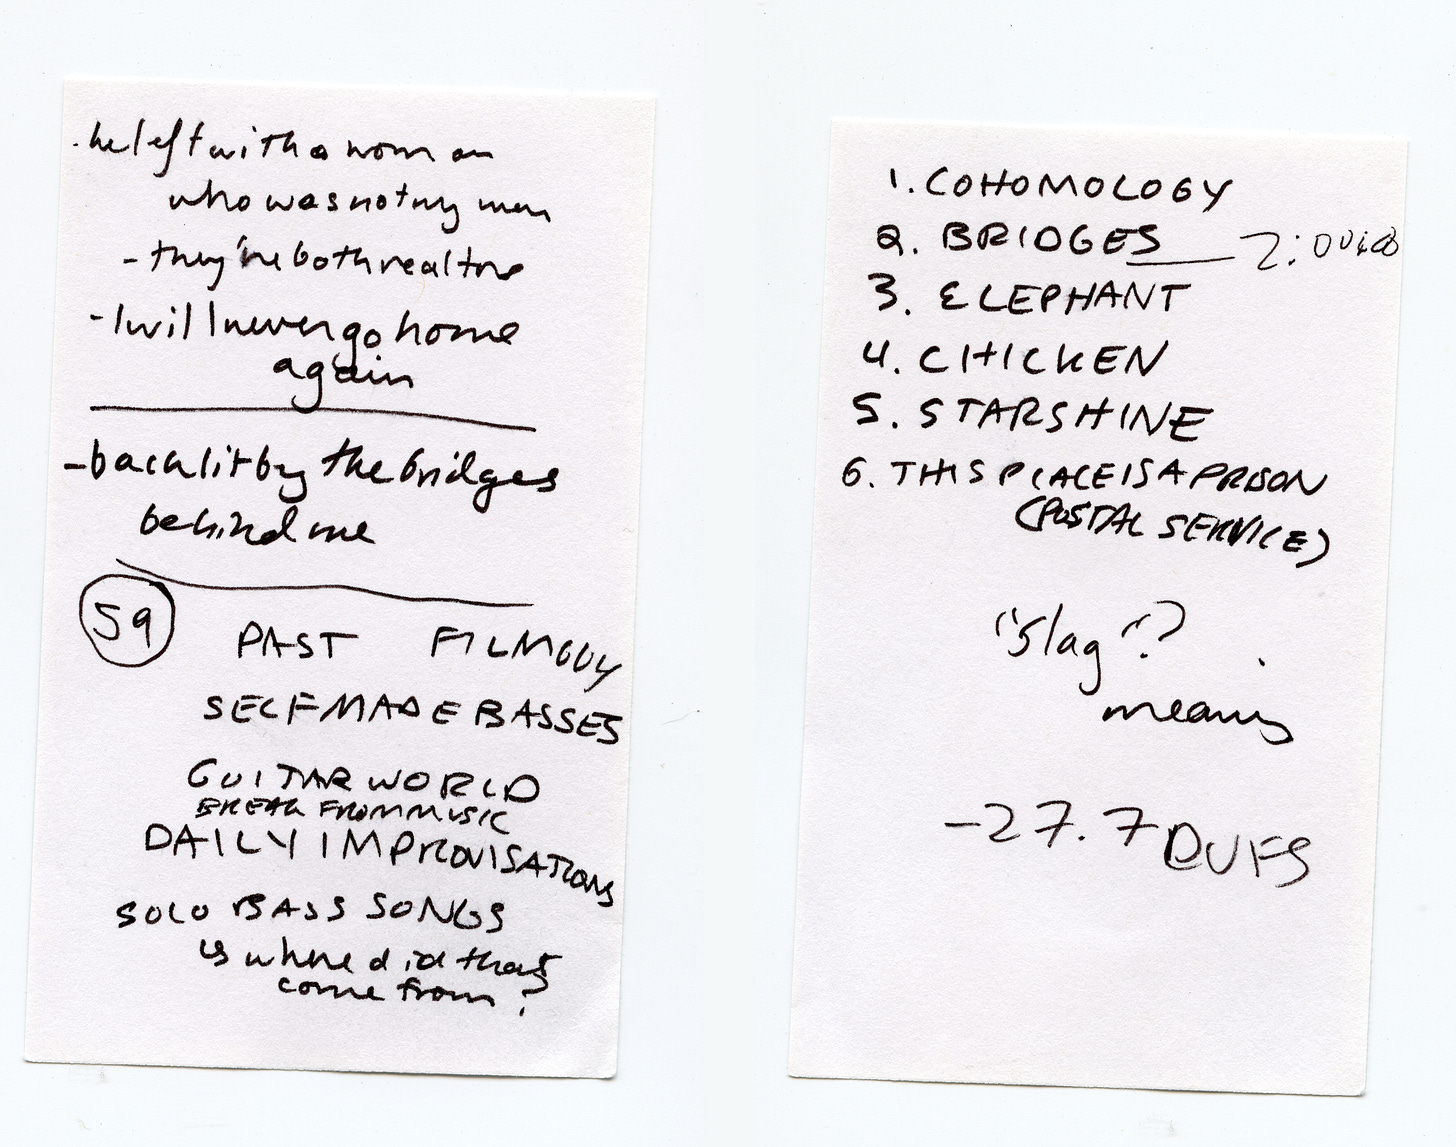 · he left with a woman
who was not my mom
- they're both realtors
- I will never go home
again
- backlit by the bridges
behind me
59
PAST FILMGUY
SELF MADE BASSES
GUITAR WORLD
BREAK FROM MUSIC
DAILY IMPROVISATIONS
SOLO BASS SONGS
is where did that
come from?
1. COHOMOLOGY
2. BRIDGES
3. ELEPHANT
4. CHICKEN
5. STARSHINE
6. THIS PLACE IS A PRISON
(POSTAL SERVICE)
"slag"?
means
-27.7